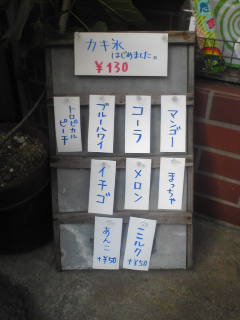 カキ氷
はじめました。
¥130
マンゴー
コーラ
ブルーハワイ
トロピカル
ピーチ
まっちゃ
メロン
イチゴ
ミルク
+¥50
あんこ
+¥50